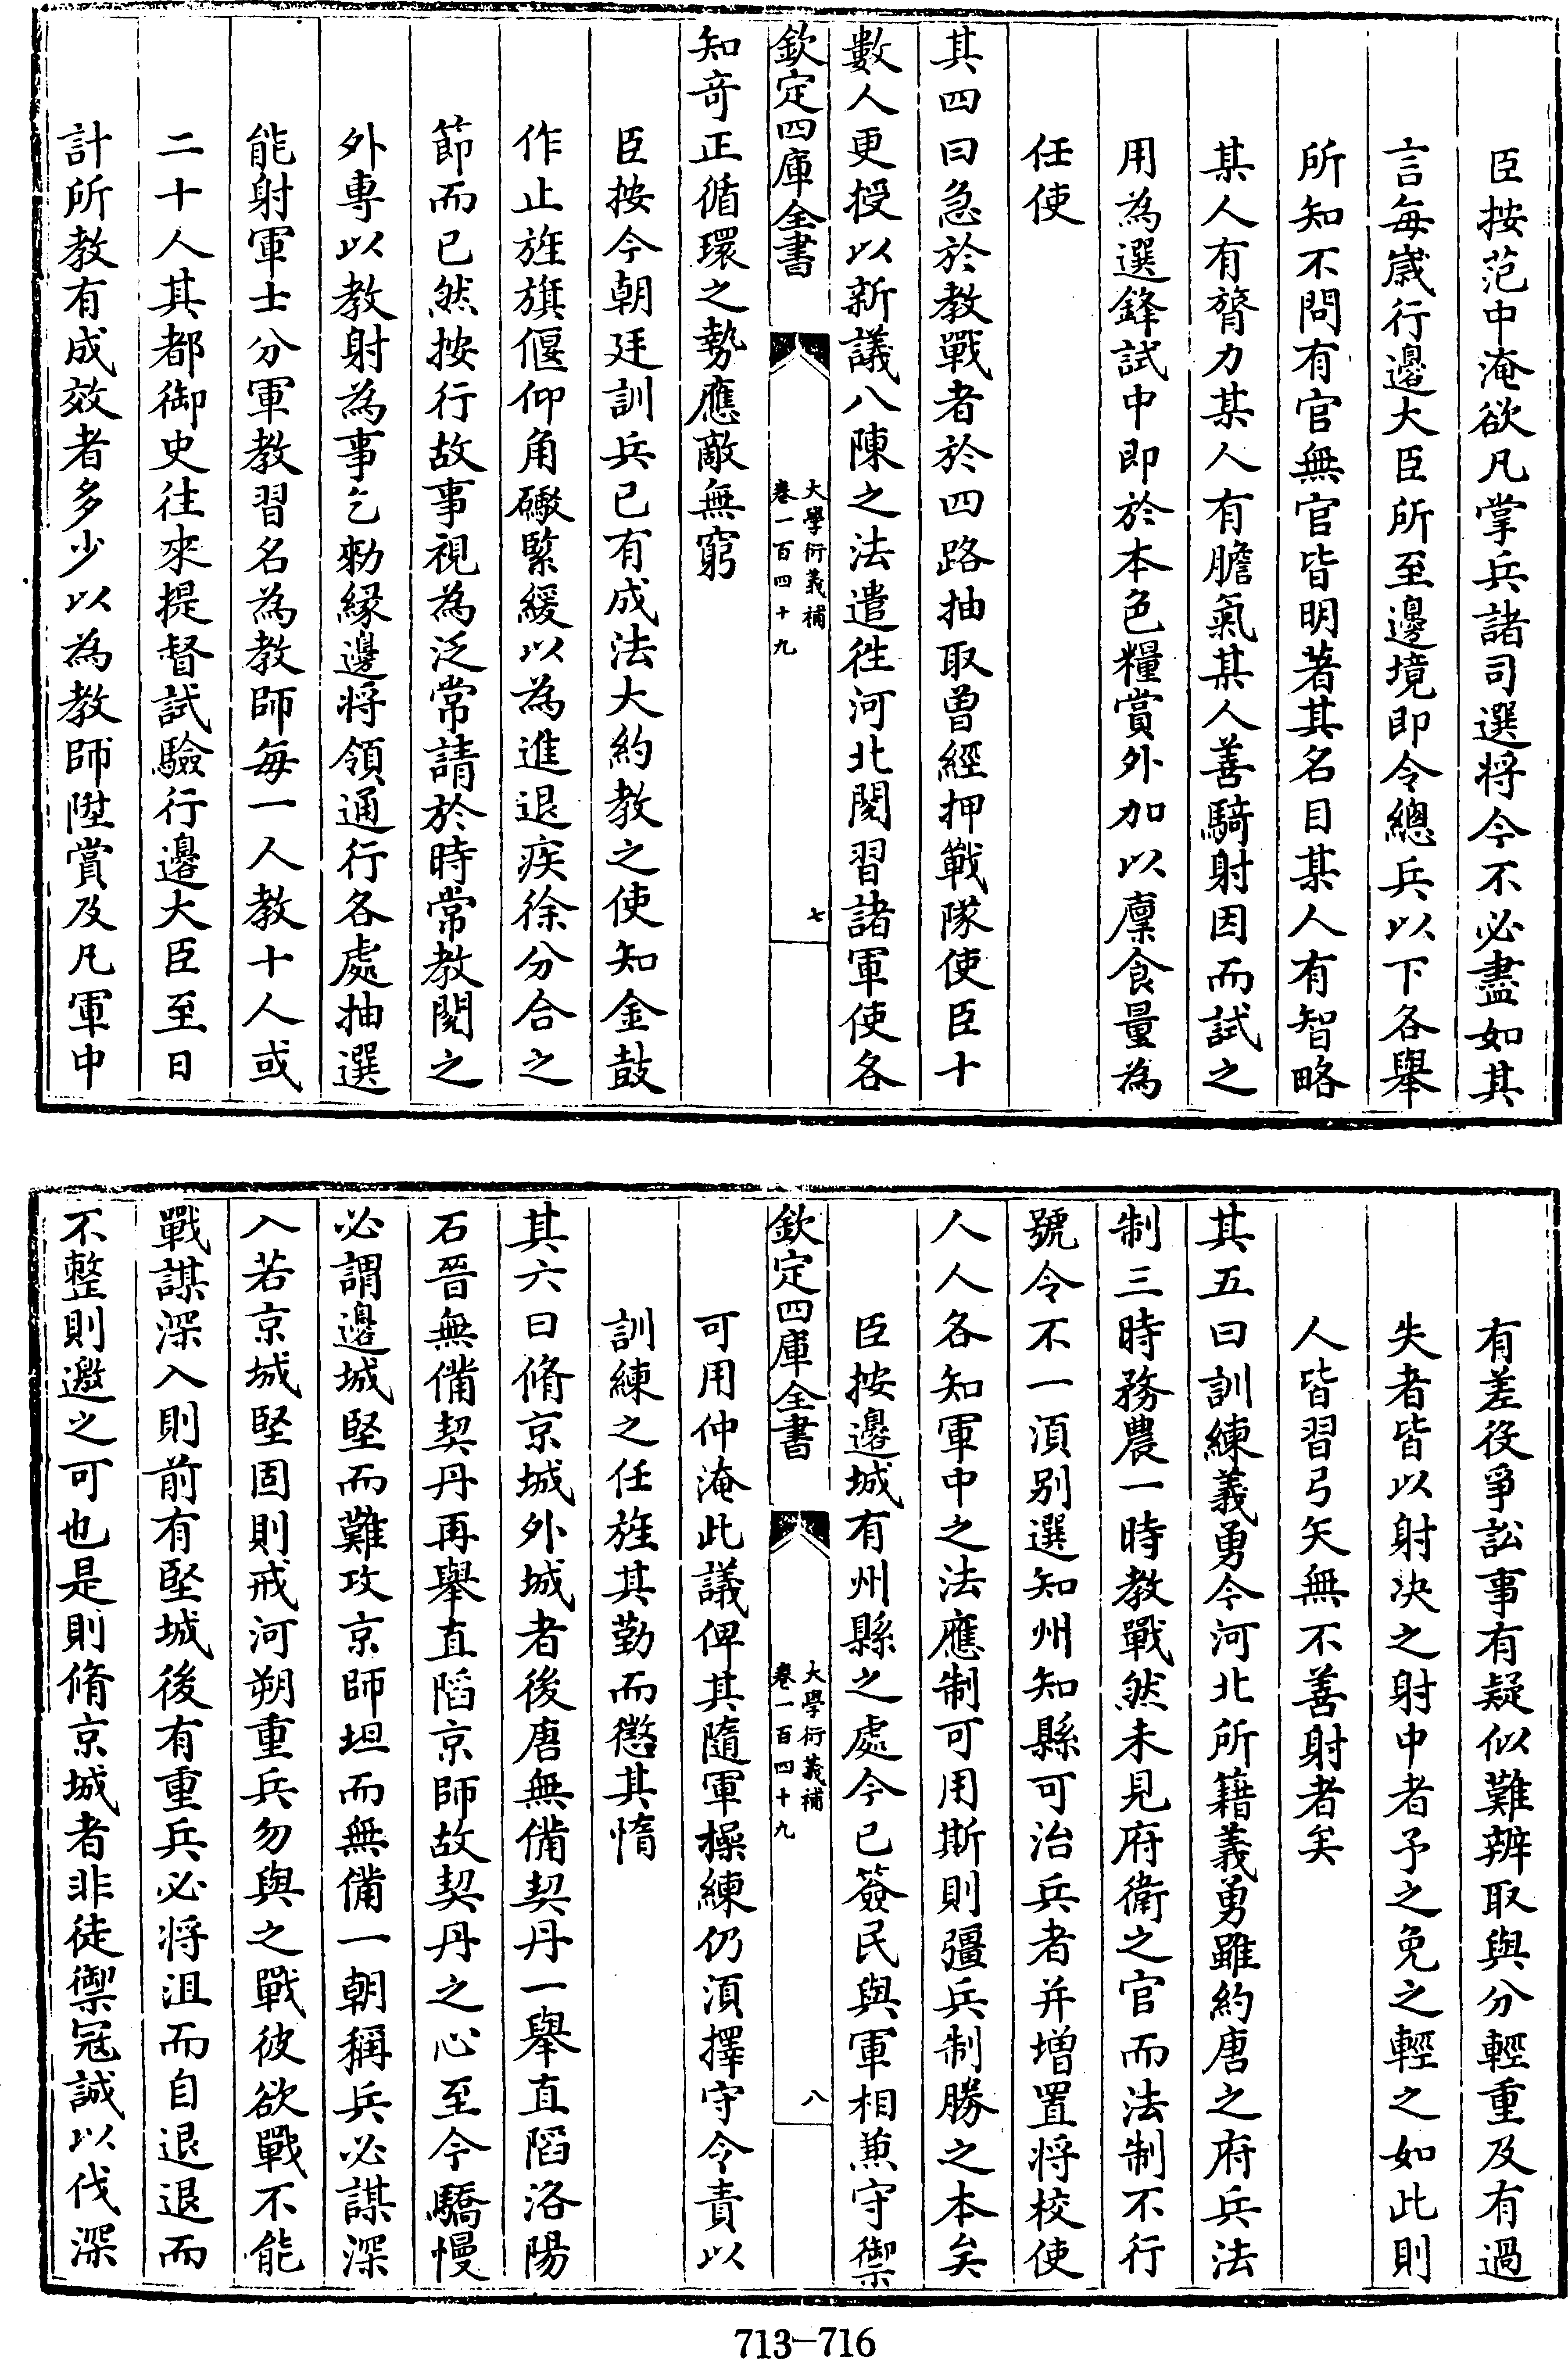 臣按范中淹欲凡掌兵諸司選将今不必盡如其
言每嵗行邉大臣所至邉境即令總兵以下各舉
所知不問有官無官皆明著其名目某人有智略
某人有膂力某人有膽氣某人善騎射因而試之
用為選鋒試中即於本色糧賞外加以廩食量為
任使
其四曰急於教戰者於四路抽取曽經押戰隊使臣十
數人更授以新議八陳之法遣徃河北閱習諸軍使各
欽定四庫全書
大學衍義補
卷一百四十九
七
知竒正循環之勢應敵無窮
臣按今朝廷訓兵已有成法大約教之使知金鼓
作止旌旗偃仰角礮緊緩以為進退疾徐分合之
節而已然按行故事視為泛常請於時常教閱之
外專以教射為事乞勑縁邉将領通行各處抽選
能射軍士分軍教習名為教師每一人教十人或
二十人其都御史往來提督試驗行邉大臣至日
計所教有成效者多少以為教師陞賞及凡軍中
有差役爭訟事有疑似難辨取與分輕重及有過
失者皆以射决之射中者予之免之輕之如此則
人皆習弓矢無不善射者矣
其五曰訓練義勇今河北所籍義勇雖約唐之府兵法
制三時務農一時教戰然未見府衛之官而法制不行
號令不一湏别選知州知縣可治兵者并增置将校使
人人各知軍中之法應制可用斯則彊兵制勝之本矣
臣按邉城有州縣之處今已簽民與軍相兼守禦
欽定四庫全書
大學衍義補
卷一百四十九
八
可用仲淹此議俾其隨軍操練仍湏擇守令責以
訓練之任旌其勤而懲其惰
其六曰脩京城外城者後唐無備契丹一舉直陷洛陽
石晉無備契丹再舉直陷京師故契丹之心至今驕慢
必謂邉城堅而難攻京師坦而無備一朝稱兵必謀深
入若京城堅固則戒河朔重兵勿與之戰彼欲戰不能
戰謀深入則前有堅城後有重兵必将沮而自退退而
不整則邀之可也是則脩京城者非徒禦冦誠以伐深
713-716